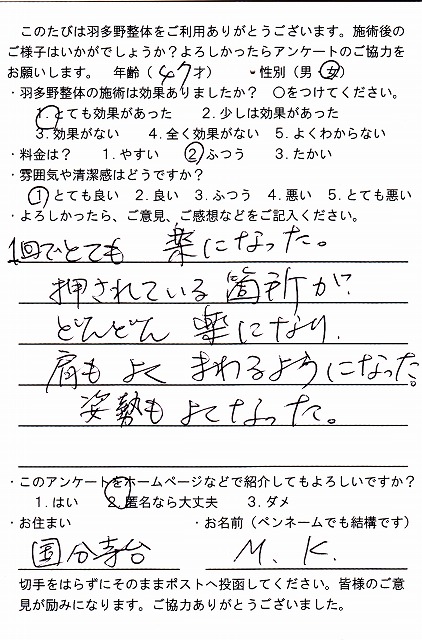 このたびは羽多野整体をご利用ありがとうございます。施術後の
ご様子はいかがでしょうか？よろしかったらアンケートのご協力を
お願いします。 年齢（47才） ・性別（男・女）
・羽多野整体の施術は効果ありましたか？ ○をつけてください。
1. とても効果があった 2. 少しは効果があった
3. 効果がない 4. 全く効果がない 5. よくわからない
・料金は？ 1. やすい ②ふつう 3. たかい
・雰囲気や清潔感はどうですか？
①とても良い 2. 良い 3. ふつう 4. 悪い 5. とても悪い
・よろしかったら、ご意見、ご感想などをご記入ください。
1回でとても 楽になった。
押されている箇所が、
どんどん 楽になり、
肩も よく まわるようになった。
姿勢も よくなった。
・このアンケートをホームページなどで紹介してもよろしいですか？
1. はい 2. 匿名なら大丈夫 3. ダメ
・お住まい ・お名前（ペンネームでも結構です）
国分寺台 M. K.
切手をはらずにそのままポストへ投函してください。皆様のご意
見が励みになります。ご協力ありがとうございました。